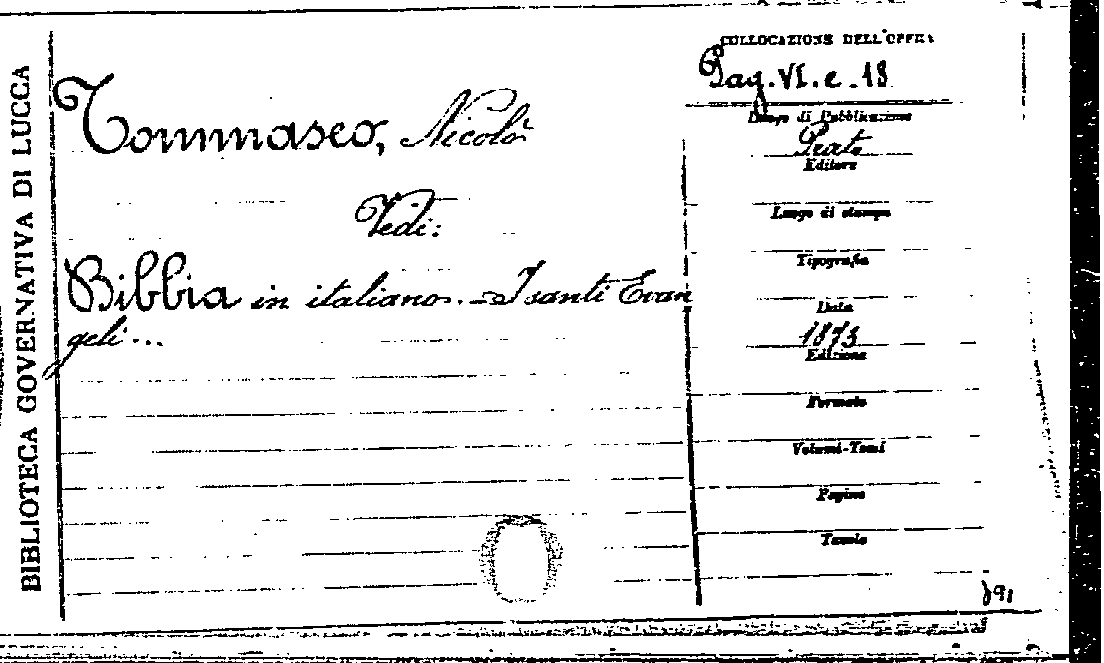 BIBLIOTECA GOVERNATIVA DI LUCCA
Tommaseo, Nicolò
Vedi:
Bibbia in italiano. - I santi Evan
geli...
COLLOCAZIONE DELL'OPERA
Pag. VI. e. 18
Luogo di Pubblicazione
Prato
Editore
Luogo di stampa
Tipografia
Data
1873
Edizione
Formato
Volumi-Tomi
Pagine
Tavole